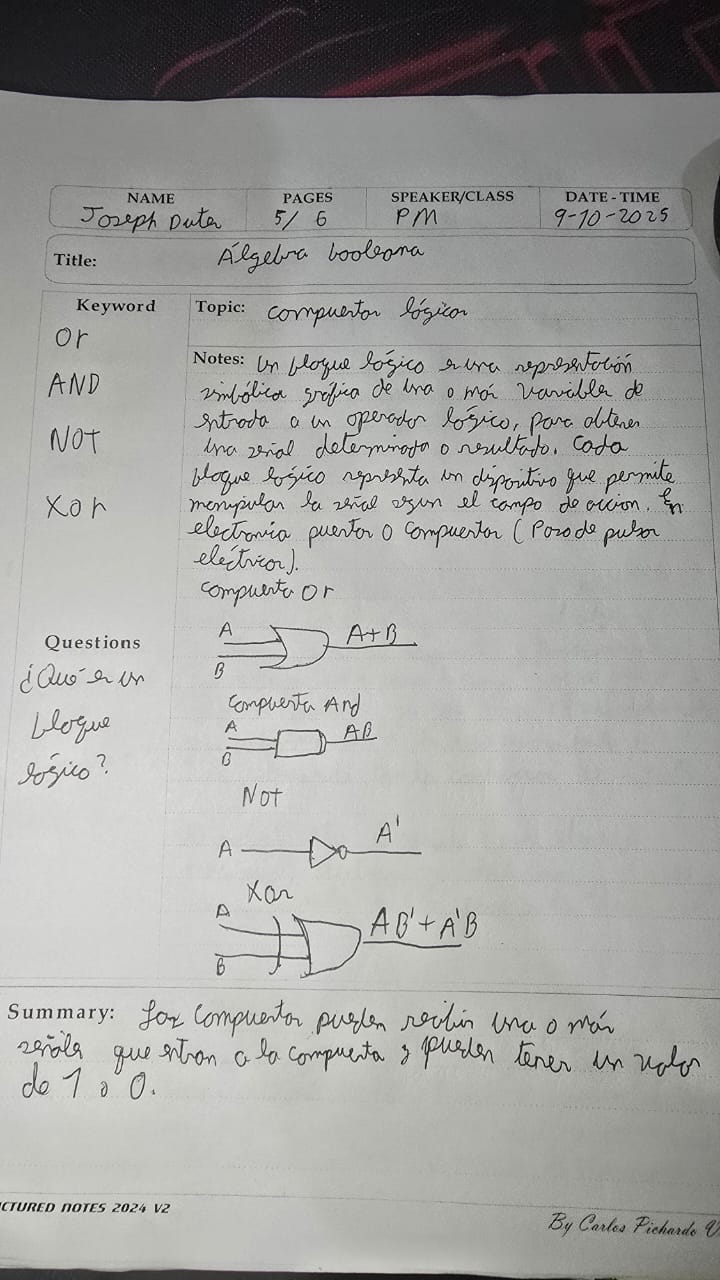 NAME PAGES SPEAKER/CLASS DATE - TIME
Joseph Duta 5/ 6 PM 9-10-2025
Title: Álgebra booleana
Keyword
Or
AND
NOT
Xor
Topic: compuertas lógicas
Notes: Un bloque lógico es una representación
simbólica gráfica de una o más variables de
entrada a un operador lógico, para obtener
una señal determinada o resultado. Cada
bloque lógico representa un dispositivo que permite
manipular la señal segun el campo de accion. En
electronía puertas o compuertas (Paso de pulsos
eléctricos).
compuerta Or
A
B
A+B
compuerta And
A
B
AB
Not
A
A'
Xor
A
B
AB'+A'B
Questions
¿Qué es un
bloque
lógico?
Summary: Las compuertas pueden recibir una o más
señales que entran a la compuerta y pueden tener un valor
de 1 o 0.
CTURED NOTES 2024 V2
By Carlos Pichardo V